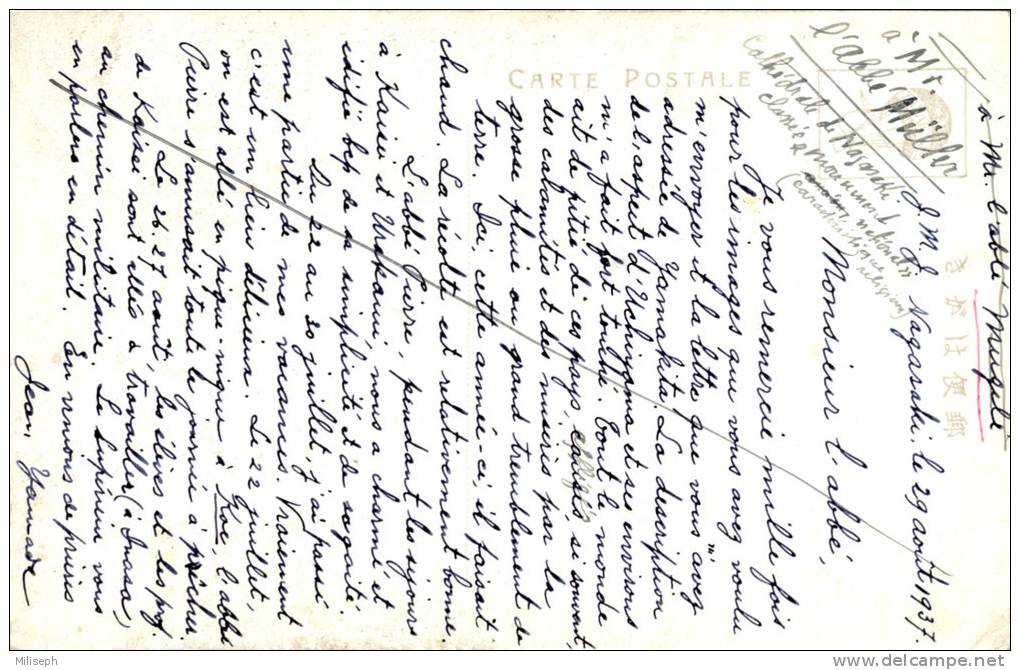 CARTE POSTALE
きがは便郵
à M. l'abbé Muglé
à Mr.
l'abbé Müller
Cathédrale de Nagasaki
classée
monument
national"
(caractéristique
religion)
J. M. J. Nagasaki, le 29 août 1937.
Monsieur l'abbé,
Je vous remercie mille fois
pour les images que vous avez voulu
m'envoyer et la lettre que vous m'avez
adressée de Yamakita. La description
de l'aspect d'Uchiyama et ses environs
m'a fait fort troublé. Tout le monde
ait de pitié de ces pays, affligés, si souvent,
des calamités et des misères par la
grosse pluie ou grand tremblement de
terre. Ici, cette année-ci, il faisait
chaud. La récolte est relativement bonne
L'abbé Pierre, pendant les séjours
à Kaisei et Urakami, nous a charmé, et
édifié bcp de sa simplicité et de sagoité.
Du 22 au 20 juillet, j'ai passé
une partie de mes vacances. Vraiment
c'est un lieu délicieux. Le 22 juillet,
on est allé en pique-nique à Koe, l'abbé
Pierre s'amusait toute la journée à pêcher.
Le 26, 27 août, les élèves et les prof.
de Kaisei sont allés à travailler (à Inasa)
au chemin militaire. Le Supérieur vous
en parlera en détail. En union de prières
Jean, Yamada
Miliseph
www.delcampe.net